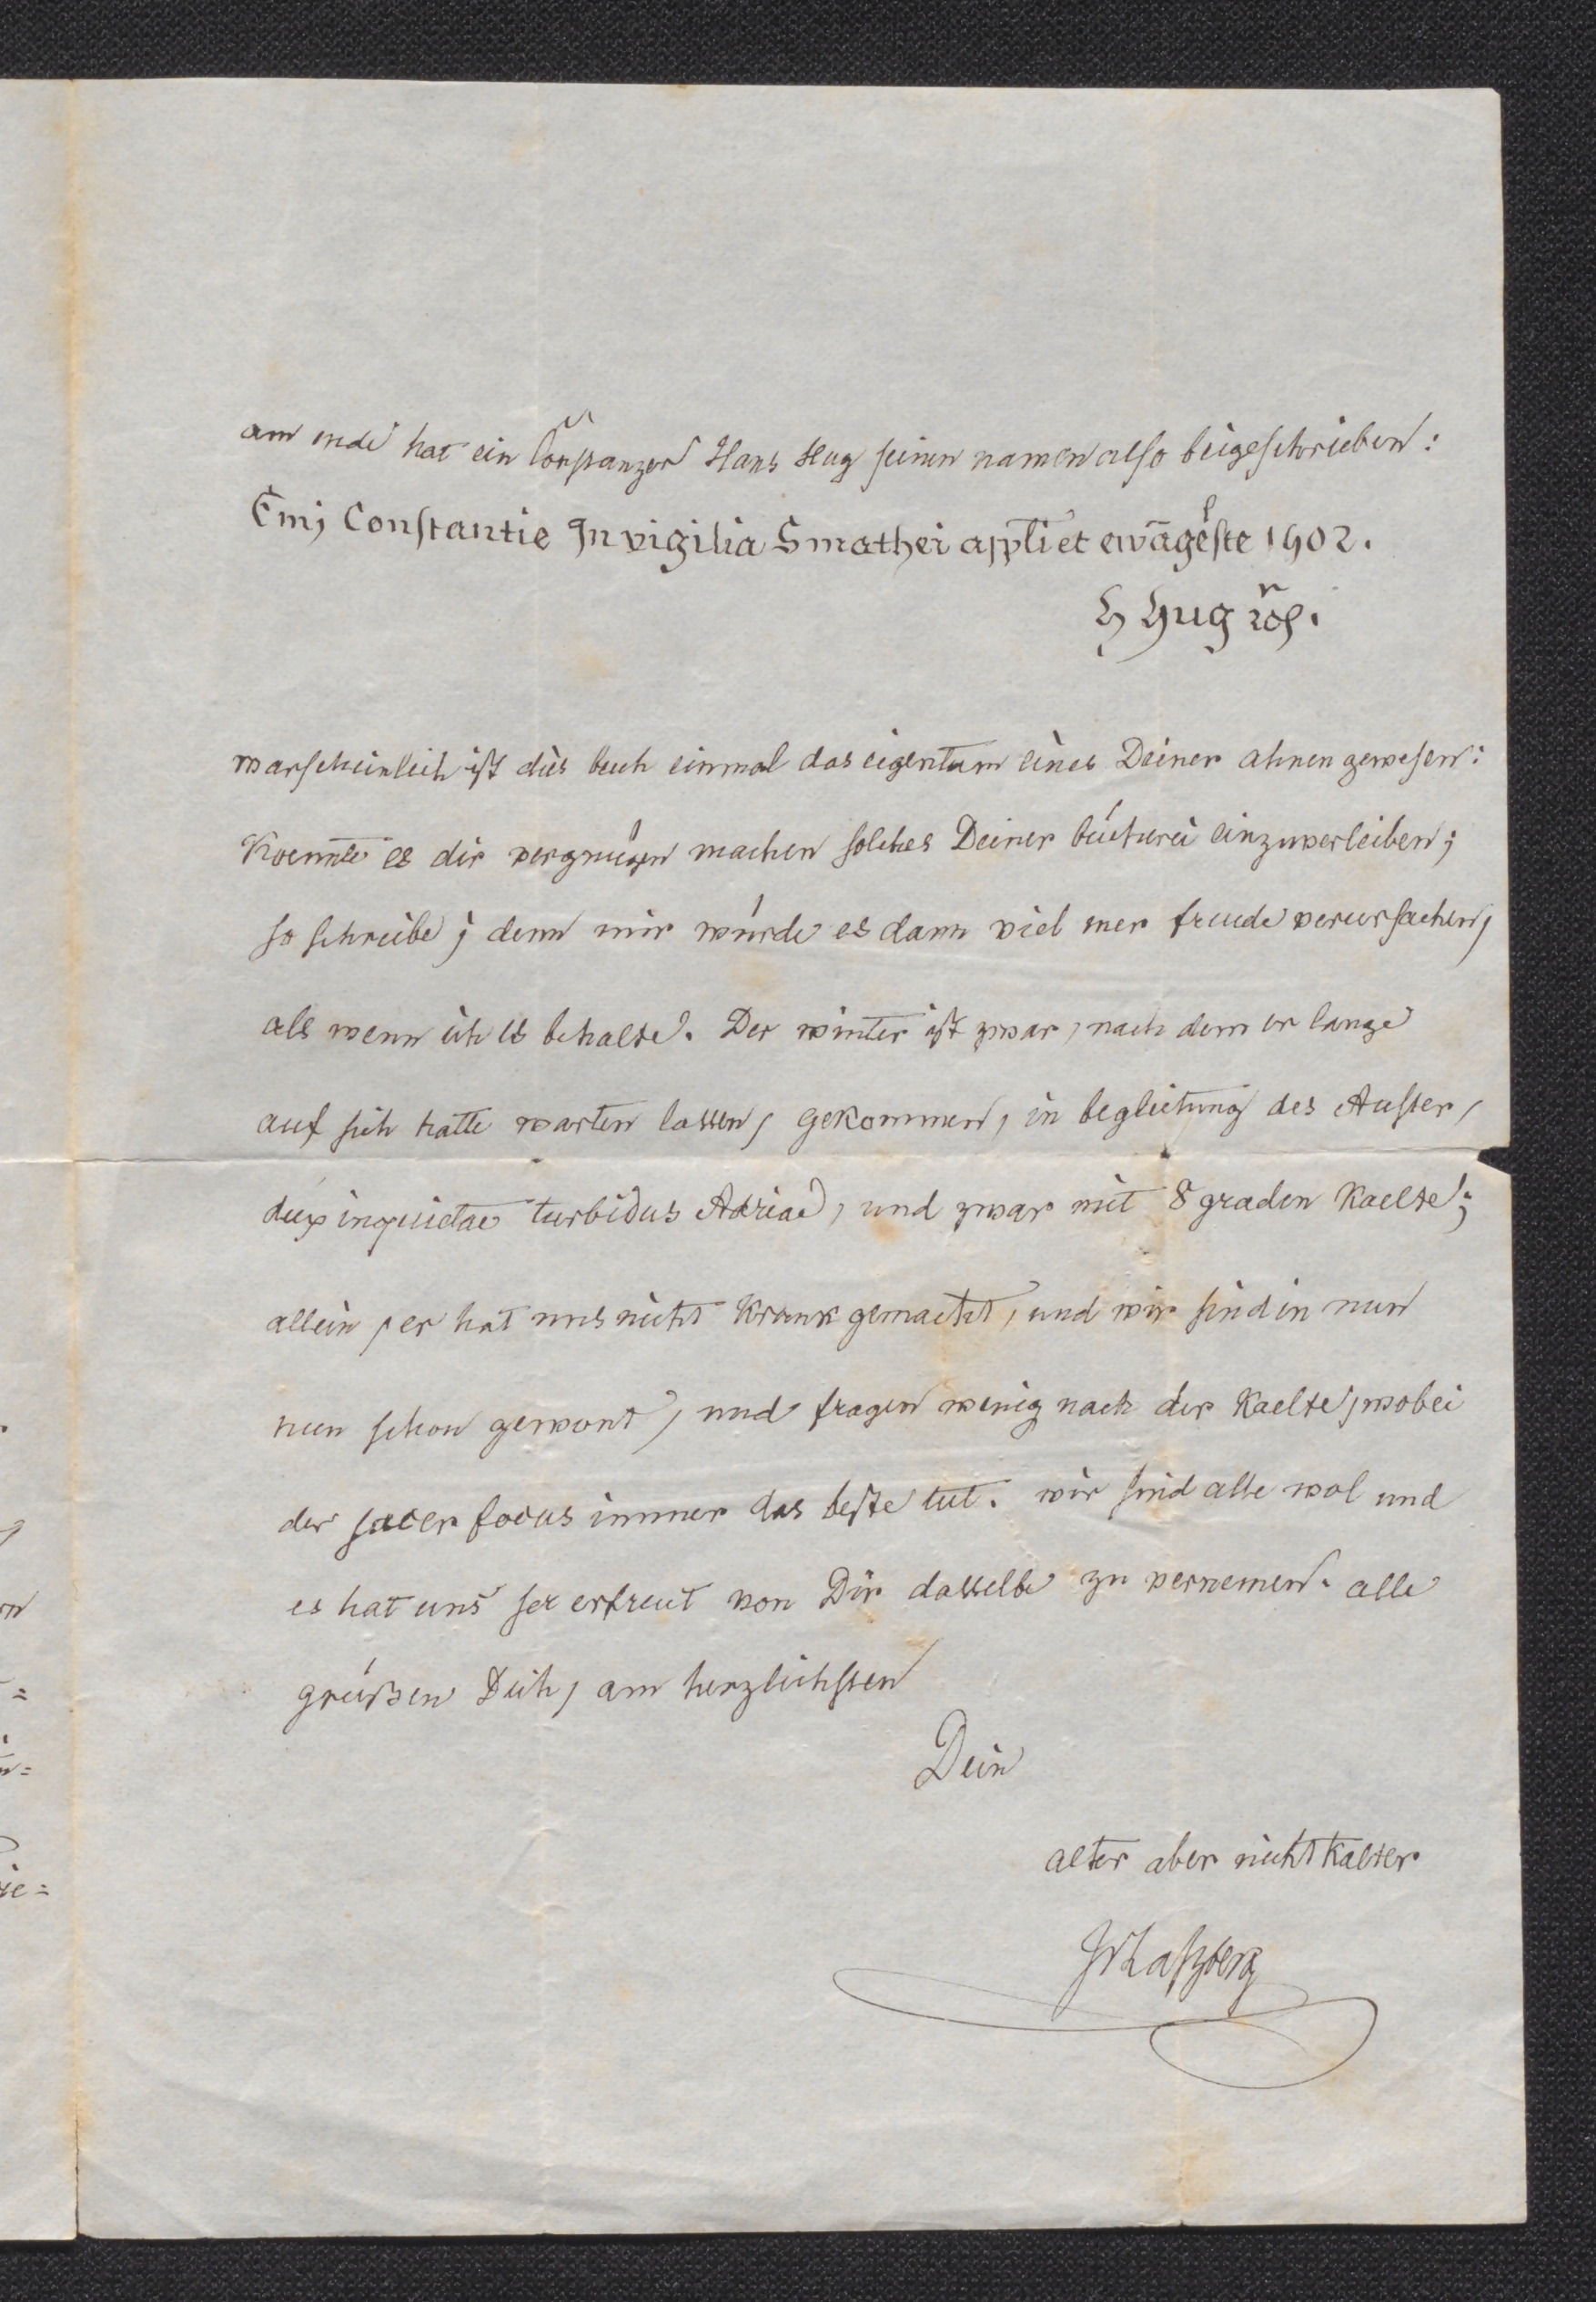 am ende hat ein Conſtanzer Hans Hug ſeinen namen alſo beigeſchrieben:
Emj Conſtantie In vigilia S mathei appli et ewāgeſte 1402.
H Hug
warſcheinlich iſt dies buch einmal das eigentum eines Deiner ahnen geweſen:
Koennte es dir vergnügen machen ſolches Deiner bücherei einzuverleiben;
ſo ſchreibe; denn mir würde es dann viel mer freude verurſachen,
als wenn ich es behalte. Der winter iſt zwar, nach dem er lange
auf ſich hatte warten laſſen, gekommen, in begleitung des Auſter,
dux inquietae turbidus Adriae, und zwar mit 8 graden Kaelte;
allein, er hat uns nicht Krank gemacht, und wir ſind in nun
nun ſchon gewont, und fragen wenig nach der Kaelte, wobei
der ſacer focus immer das beſte tut. wir ſind alle wol und
es hat uns ſer erfreut von Dir daſſelbe zu vernemen. alle
grüßen Dich, am herzlichſten
Dein
alter aber nicht Kalter
JvLaſzberg